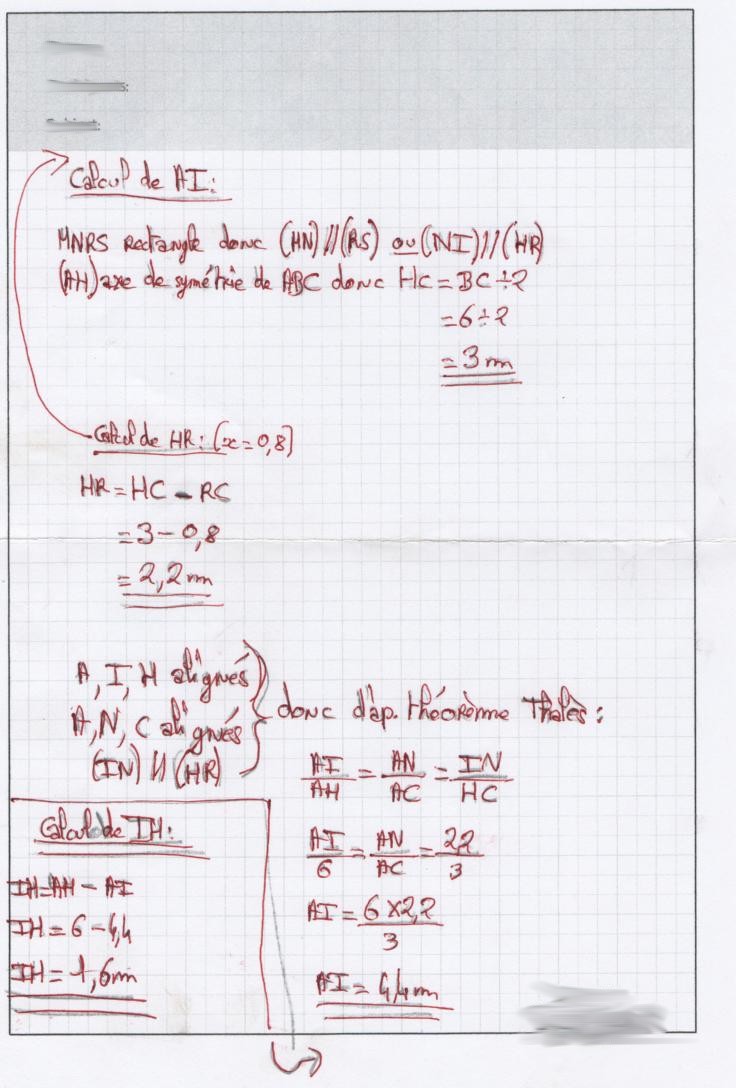 Calcul de AI:
MNRS Rectangle donc (MN)//(RS) ou (NI)//(HR)
(AH) axe de symétrie de ABC donc HC = BC ÷ 2
= 6 ÷ 2
= 3 m
Calcul de HR: (x = 0,8)
HR = HC - RC
= 3 - 0,8
= 2,2 m
A, I, H alignés
A, N, C alignés
(IN) // (HR)
donc d'ap. théorème Thalès :
AI/AH = AN/AC = IN/HC
AI/6 = AN/AC = 2,2/3
AI = 6 × 2,2/3
AI = 4,4 m
Calcul de IH:
IH = AH - AI
IH = 6 - 4,4
IH = 1,6 m